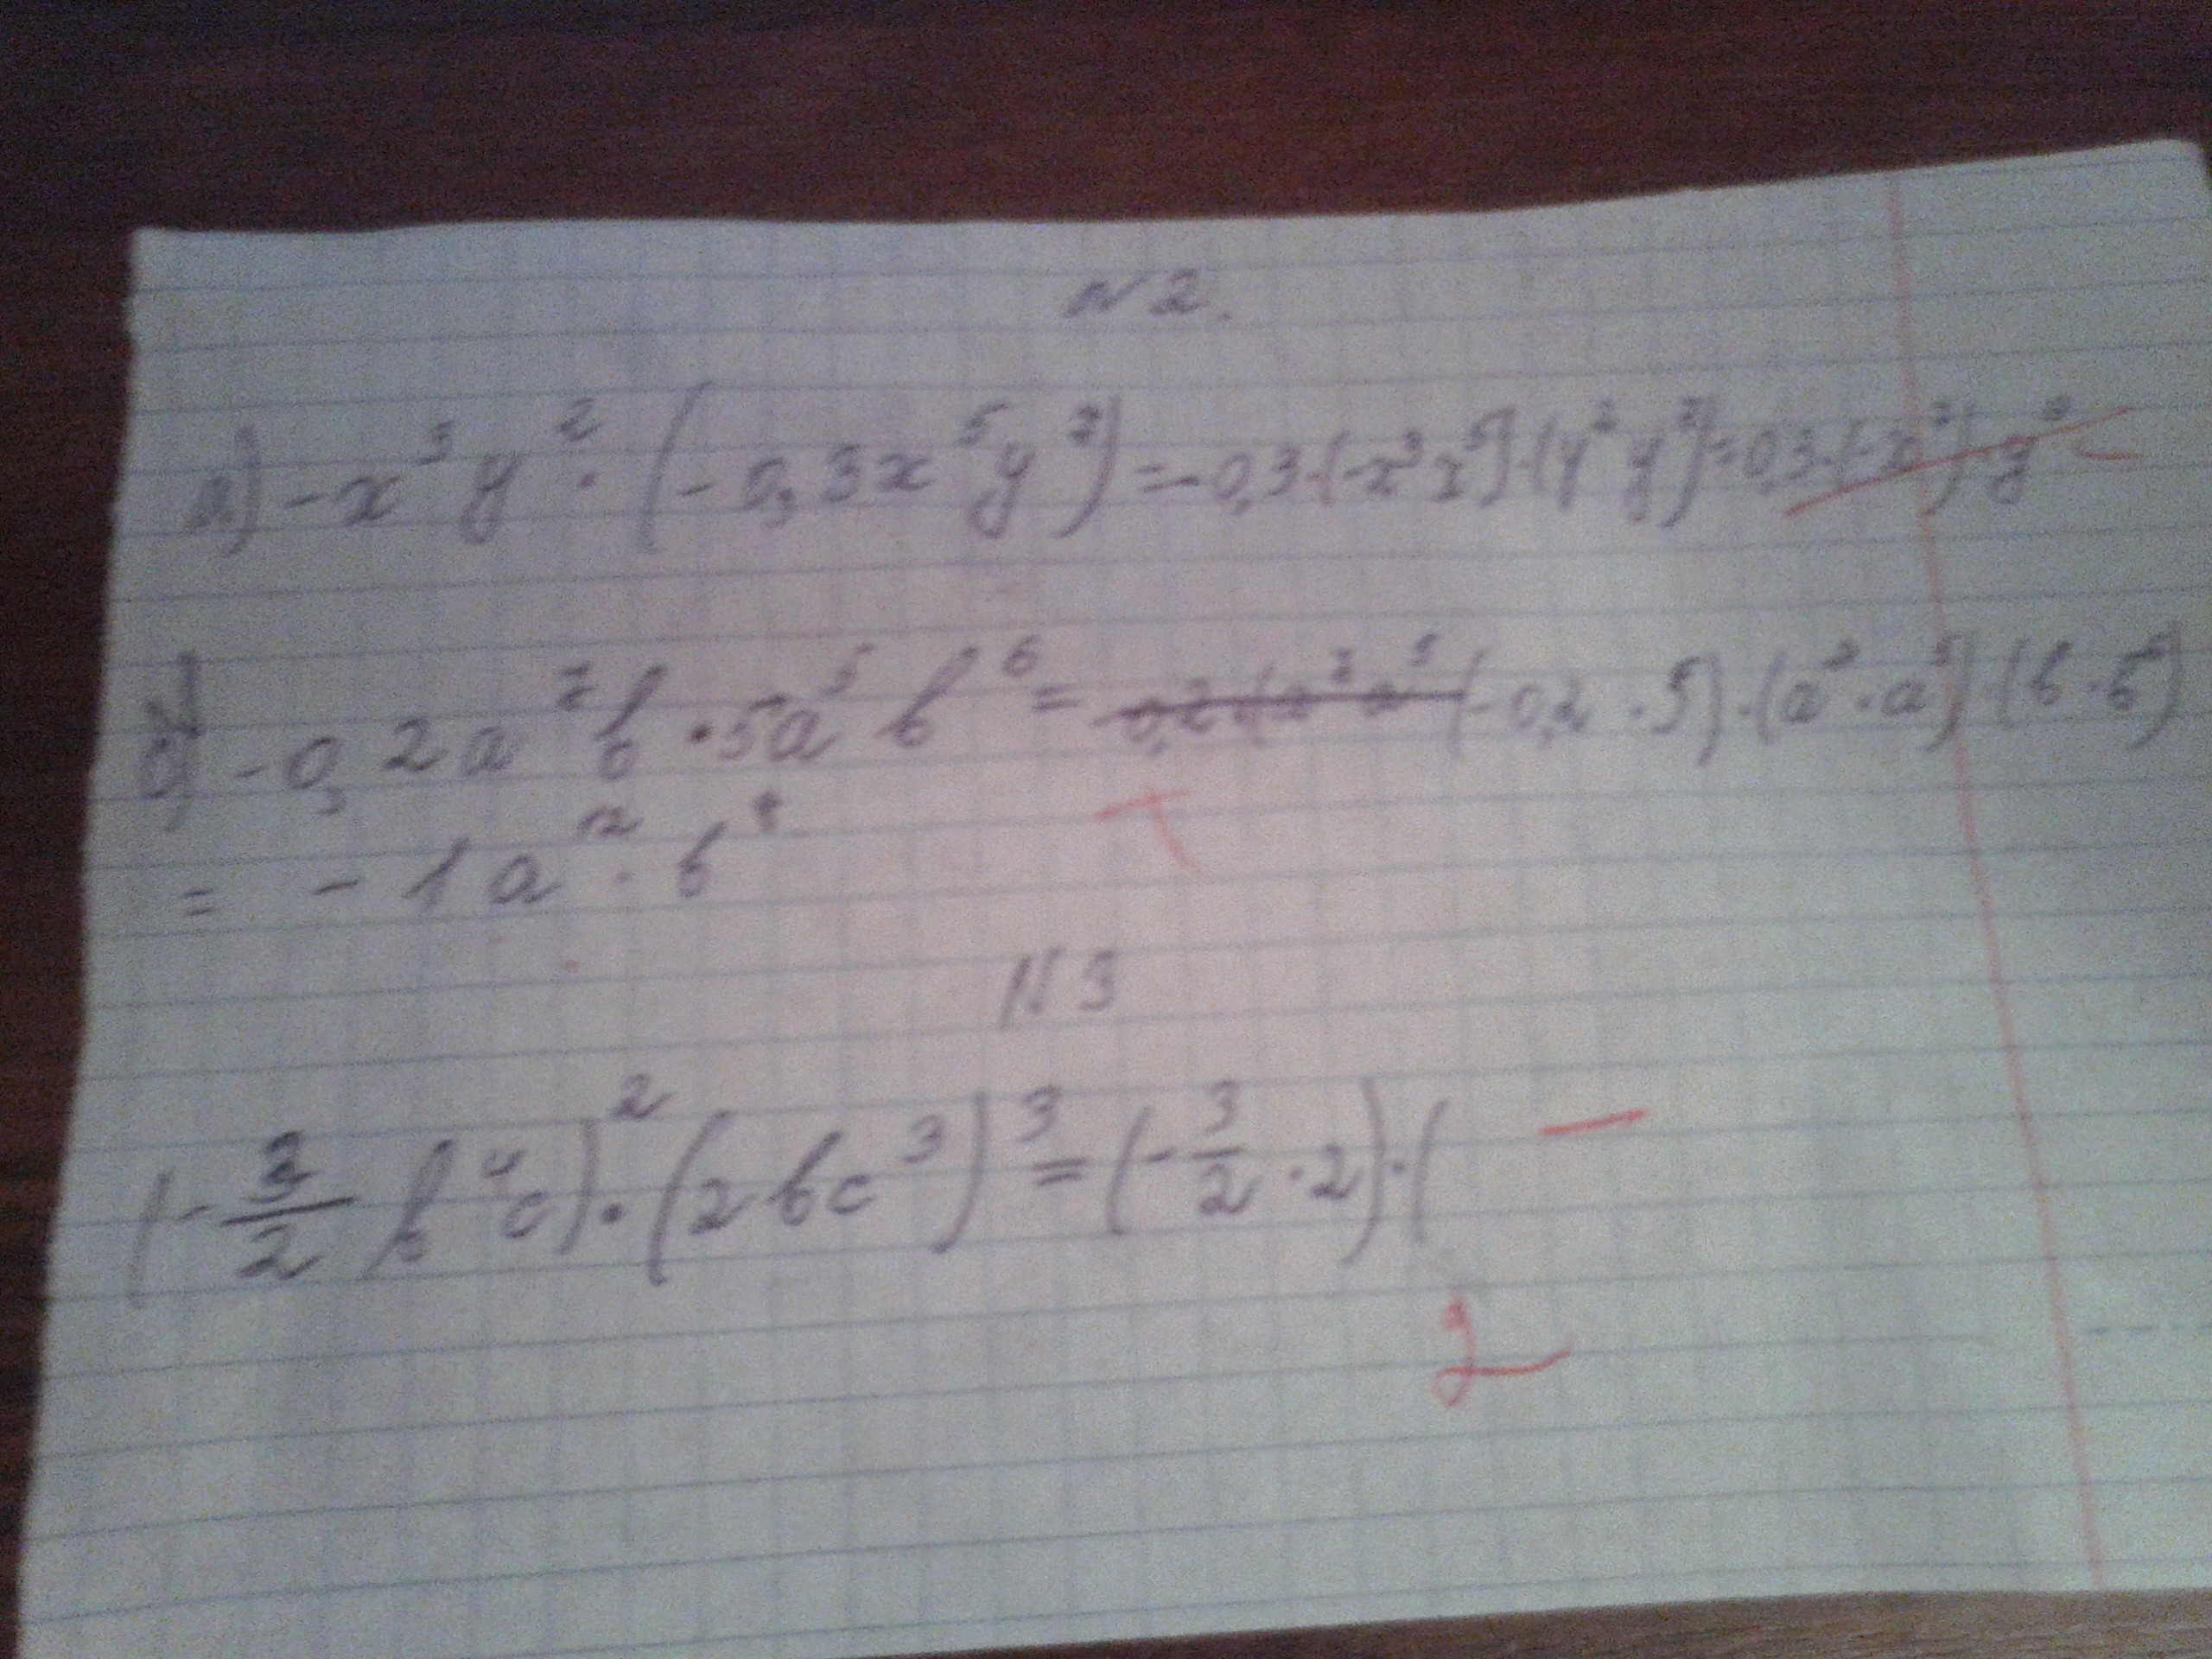 N2.
а) -x³y² · (-0,3x⁵y²) = -0,3·(-x³x⁵)·(y²y²) = 0,3·(-x²)·y⁴
б) -0,2a⁷b · 5a⁵b⁶ = (-0,2 · 5)·(a⁷·a⁵)·(b·b⁶)
= - 1a¹² · b⁷
N3
(-3/2 b⁴c)² · (2bc³)³ = (-3/2 · 2)·(
2